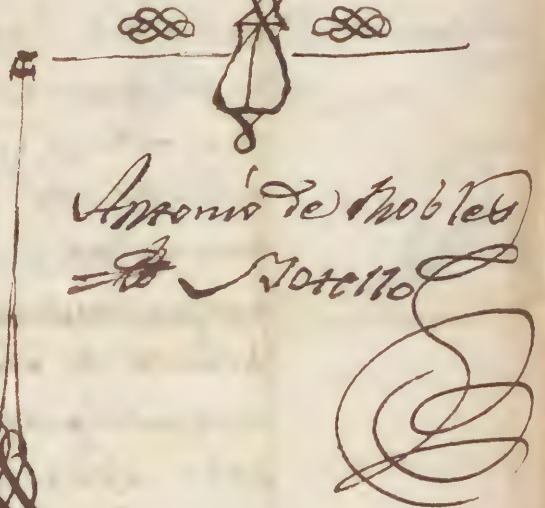 Antonio de Robles
Sotello